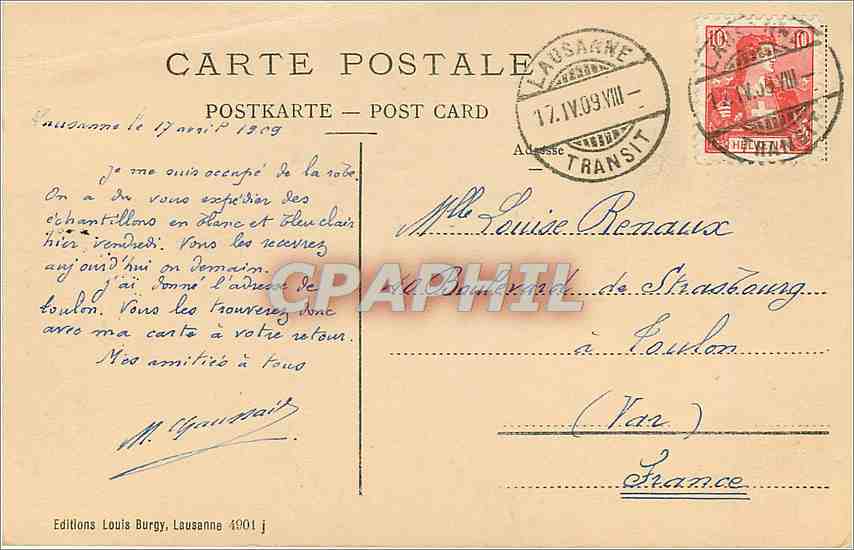 CARTE POSTALE
POSTKARTE — POST CARD
Lausanne le 17 avril 1909
Je me suis occupé de la robe.
On a du vous expédier des
échantillons en blanc et bleu clair
hier, vendredi. Vous les recevrez
aujourd'hui ou demain.
J'ai donné l'adresse de
Toulon. Vous les trouverez donc
avec ma carte à votre retour.
Mes amitiés à tous
M.
Editions Louis Burgy, Lausanne 4901 j
LAUSANNE
17.IV.09.VIII –
TRANSIT
10 10
HELVETIA
IV.09.VIII –
TRANSIT
Adresse
Mlle Louise Renaux
Boulevard de Strasbourg
à Toulon
(Var)
France
CPAPHIL